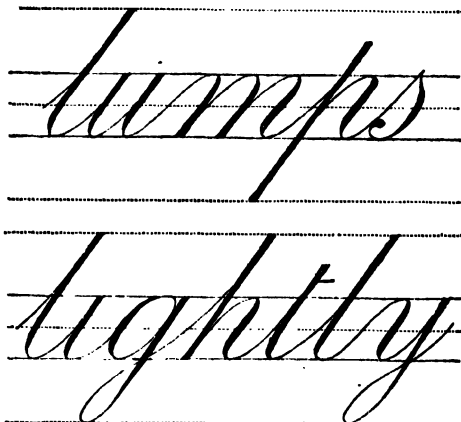 lumps
lightly